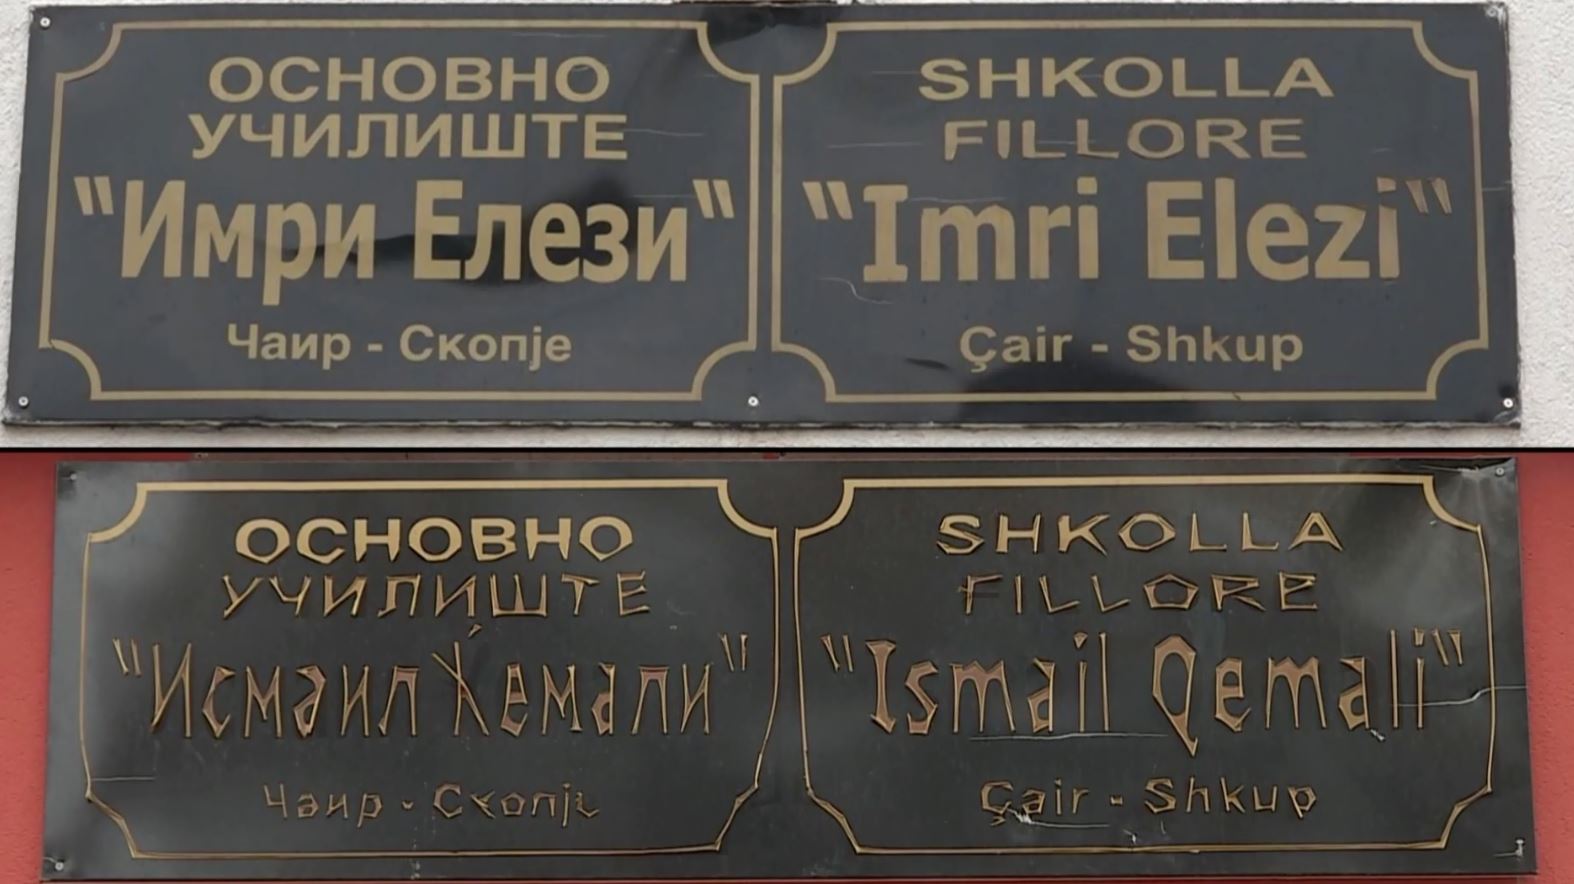 ОСНОВНО
УЧИЛИШТЕ
"Имри Елези"
Чаир - Скопје
SHKOLLA
FILLORE
"Imri Elezi"
Çair - Shkup
ОСНОВНО
УЧИЛИШТЕ
"Исмаил Ќемали"
Чаир - Скопје
SHKOLLA
FILLORE
"Ismail Qemali"
Çair - Shkup